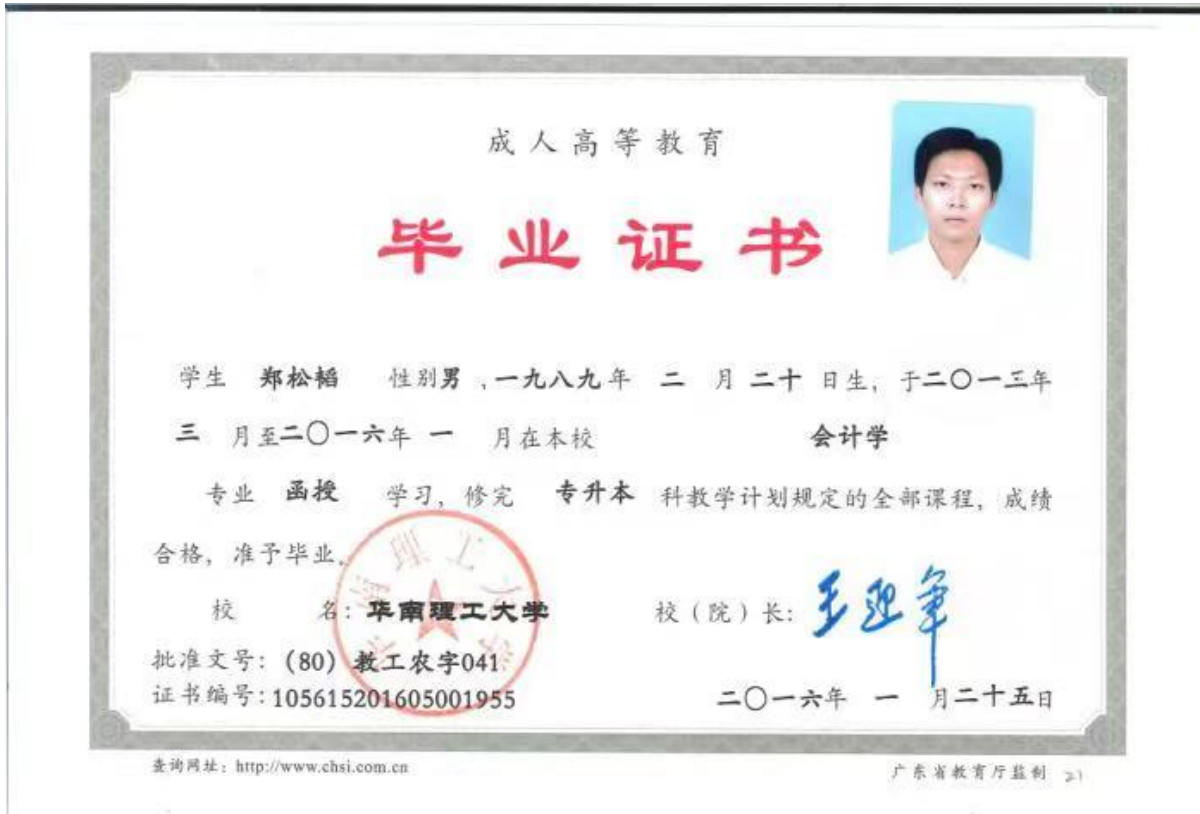 成人高等教育
毕业证书
学生 郑松韬 性别男,一九八九年 二 月二十日生,于二〇一三年
三 月至二〇一六年 一 月在本校 会计学
专业 函授 学习,修完 专升本 科教学计划规定的全部课程,成绩
合格,准予毕业。
华南理工大学
校 名:华南理工大学 校(院)长:王迎军
批准文号:(80)教工农字041
证书编号:105615201605001955 二〇一六年 一 月二十五日
查询网址:http://www.chsi.com.cn 广东省教育厅监制 21